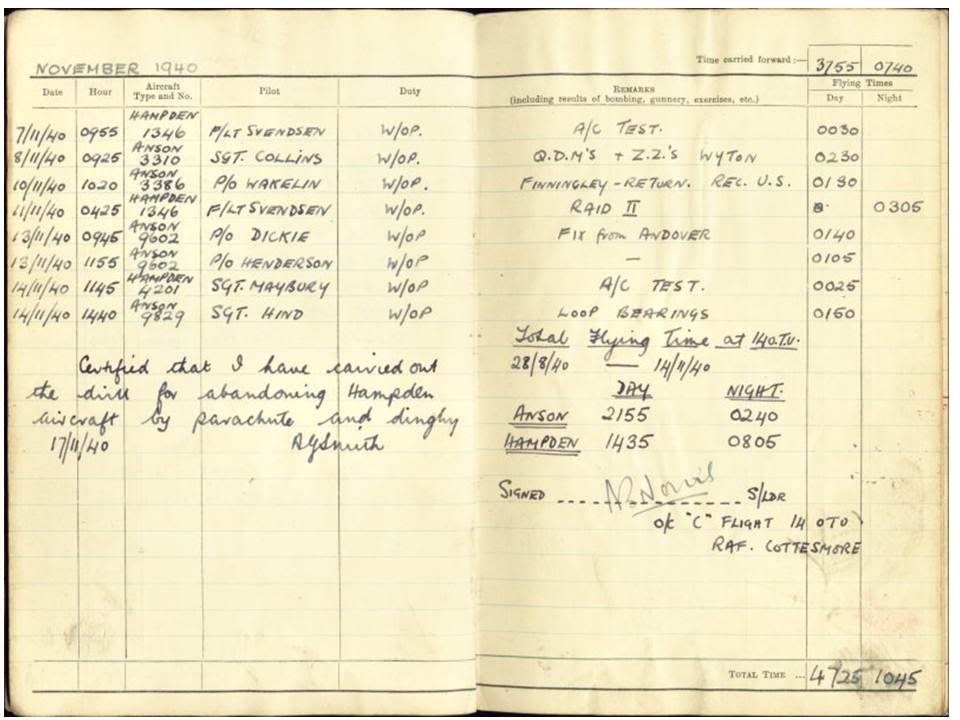 NOVEMBER 1940
Time carried forward :— 3755 0740
Date Hour Aircraft Type and No. Pilot Duty REMARKS (including results of bombing, gunnery, exercises, etc.) Flying Times Day Night
7/11/40 0955 HAMPDEN 1346 F/LT SVENDSEN W/OP. A/C TEST. 0030
8/11/40 0925 ANSON 3310 SGT. COLLINS W/OP. Q.D.M'S + Z.Z.'S WYTON 0230
10/11/40 1020 ANSON 3386 P/O WAKELIN W/OP. FINNINGLEY - RETURN. REC. U.S. 0130
11/11/40 0425 HAMPDEN 1346 F/LT SVENDSEN W/OP. RAID II 0305
13/11/40 0945 ANSON 9602 P/O DICKIE W/OP FIX from ANDOVER 0140
13/11/40 1155 ANSON 9602 P/O HENDERSON W/OP — 0105
14/11/40 1145 HAMPDEN 4201 SGT. MAYBURY W/OP A/C TEST. 0025
14/11/40 1440 ANSON 9829 SGT. HIND W/OP LOOP BEARINGS 0150
Certified that I have carried out
the drill for abandoning Hampden
aircraft by parachute and dinghy
17/11/40 RGSmith
Total Flying Time at 14 O.T.U.
28/8/40 — 14/11/40
DAY NIGHT.
ANSON 2155 0240
HAMPDEN 1435 0805
SIGNED S/LDR
O/C "C" FLIGHT 14 OTU
RAF. COTTESMORE
TOTAL TIME ... 4725 1045